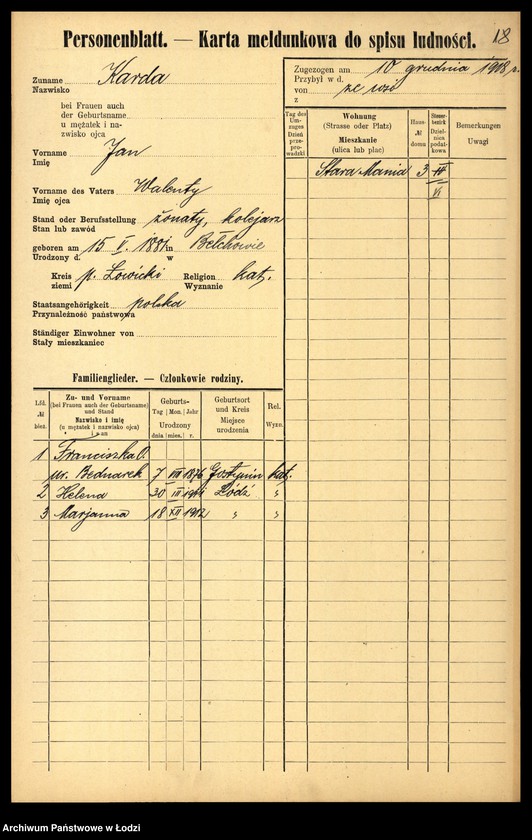 18
Personenblatt. — Karta meldunkowa do spisu ludności.
Zuname Karda
Nazwisko
bei Frauen auch
der Geburtsname
u mężatek i na-
zwisko ojca
Vorname Jan
Imię
Vorname des Vaters Walenty
Imię ojca
Stand oder Berufsstellung żonaty, kolejarz
Stan lub zawód
geboren am 15 V. 1881 in Bełchowie
Urodzony d. w
Kreis p. Łowicki Religion kat.
ziemi Wyznanie
Staatsangehörigkeit polska
Przynależność państwowa
Ständiger Einwohner von
Stały mieszkaniec
Zugezogen am 10 grudnia 1918 r.
Przybył w d.
von ze wsi
z
Tag des
Um-
zuges
Dzień
prze-
prowadzki
Wohnung
(Strasse oder Platz)
Mieszkanie
(ulica lub plac)
Haus-
№
domu
Steuer-
bezirk
Dziel-
nica
podat-
kowa
Bemerkungen
Uwagi
Stara Mania 3
VI
Familienglieder. — Członkowie rodziny.
Lfd.
№
bież.
Zu- und Vorname
(bei Frauen auch der Geburtsname)
und Stand
Nazwisko i imię
(u mężatek i nazwisko ojca)
i stan
Geburts-
Tag Mon. Jahr
Urodzony
dnia mies. r.
Geburtsort
und Kreis
Miejsce
urodzenia
Rel.
Wyzn.
1 Franciszka
ur. Bednarek 7 VIII 1876 Gostynin kat.
2 Helena 30 III 1911 Łódź "
3 Marjanna 18 XII 1912 " "
Archiwum Państwowe w Łodzi